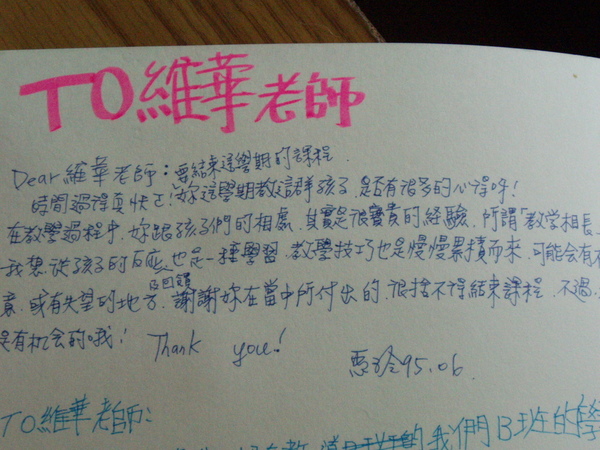 TO維華老師
Dear 維華老師：要結束這學期的課程.
時間過得真快ㄛ!妳這學期教這群孩子,是否有很多的心得呀!
在教學過程中,妳跟孩子們的相處,其實是很寶貴的經驗,所謂「教学相長」
我想,從孩子的反應也是一種學習,教學技巧也是慢慢累積而來,可能會有不
及回饋
意,或有失望的地方,謝謝妳在當中所付出的,很捨不得結束課程,不過,
是有机会的哦! Thank you!
惠玲95.06.
TO維華老師:
我們B班的學